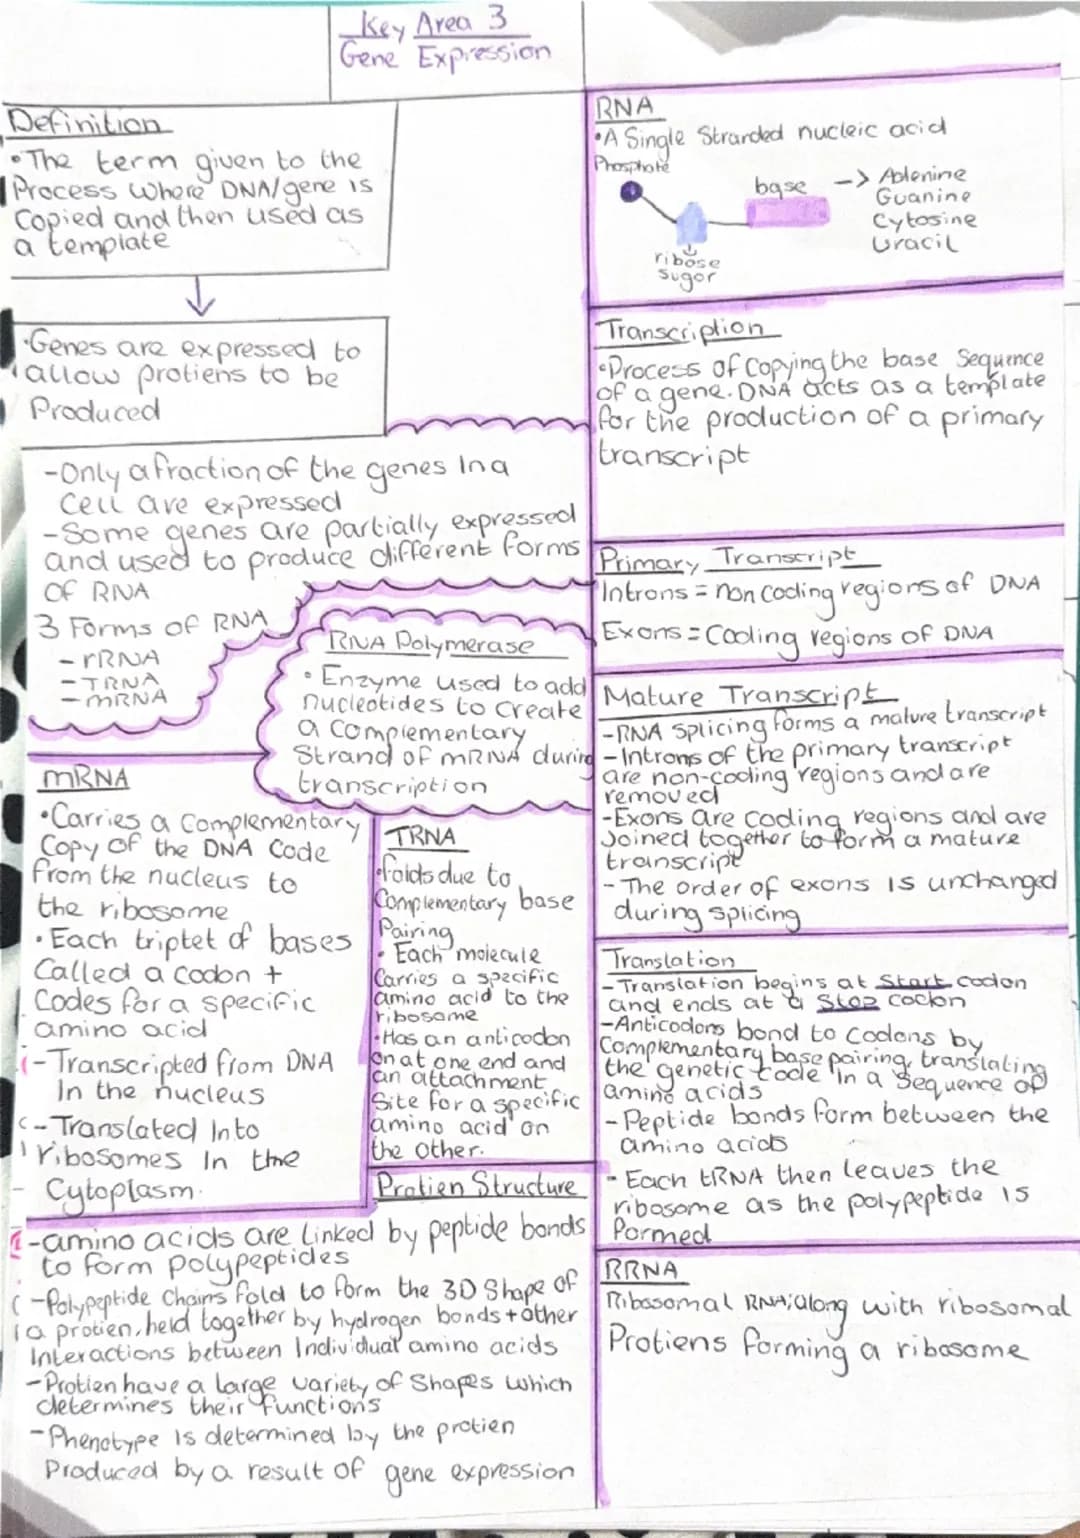 Key Area 3
Gene Expression
Definition
•The term given to the
Process where DNA/gene is
Copied and then used as
a template
•Genes are expressed to
allow protiens to be
Produced
-Only a fraction of the genes In a
Cell are expressed
-Some genes are partially expressed
and used to produce different forms
OF RNA
3 Forms of RNA
- rRNA
- TRNA
- mRNA
RNA Polymerase
• Enzyme used to add
nucleotides to create
a complementary
Strand of mRNA during
transcription
mRNA
•Carries a Complementary
Copy of the DNA Code
from the nucleus to
the ribosome
• Each triplet of bases
Called a codon +
Codes for a specific
amino acid
- Transcribed from DNA
In the nucleus
- Translated Into
ribosomes In the
Cytoplasm.
TRNA
•folds due to
Complementary base
Pairing
• Each molecule
Carries a specific
amino acid to the
ribosome
•Has an anticodon
on at one end and
an attachment
Site for a specific
amino acid on
the other.
Protien Structure
-amino acids are linked by peptide bonds
to form polypeptides
-Polypeptide Chains fold to form the 3D Shape of
a protien, held together by hydrogen bonds + other
Interactions between Individual amino acids
-Protien have a large variety of Shapes which
determines their functions
-Phenotype is determined by the protien
Produced by a result of gene expression
RNA
•A Single Stranded nucleic acid
Phosphate
base
-> Adenine
Guanine
Cytosine
Uracil
ribose
sugar
Transcription
•Process of Copying the base Sequence
of a gene. DNA acts as a template
for the production of a primary
transcript
Primary Transcript
Introns = non coding regions of DNA
Exons = Coding regions of DNA
Mature Transcript
-RNA splicing forms a mature transcript
-Introns of the primary transcript
are non-coding regions and are
removed
-Exons are coding regions and are
Joined together to form a mature
transcript
- The order of exons is unchanged
during splicing
Translation
-Translation begins at Start codon
and ends at a Stop codon
-Anticodons bond to codons by
Complementary base pairing, translating
the genetic code in a Sequence of
amino acids
- Peptide bonds form between the
amino acids
- Each tRNA then leaves the
ribosome as the polypeptide is
Formed
RRNA
Ribosomal RNA; along with ribosomal
Protiens forming a ribosome